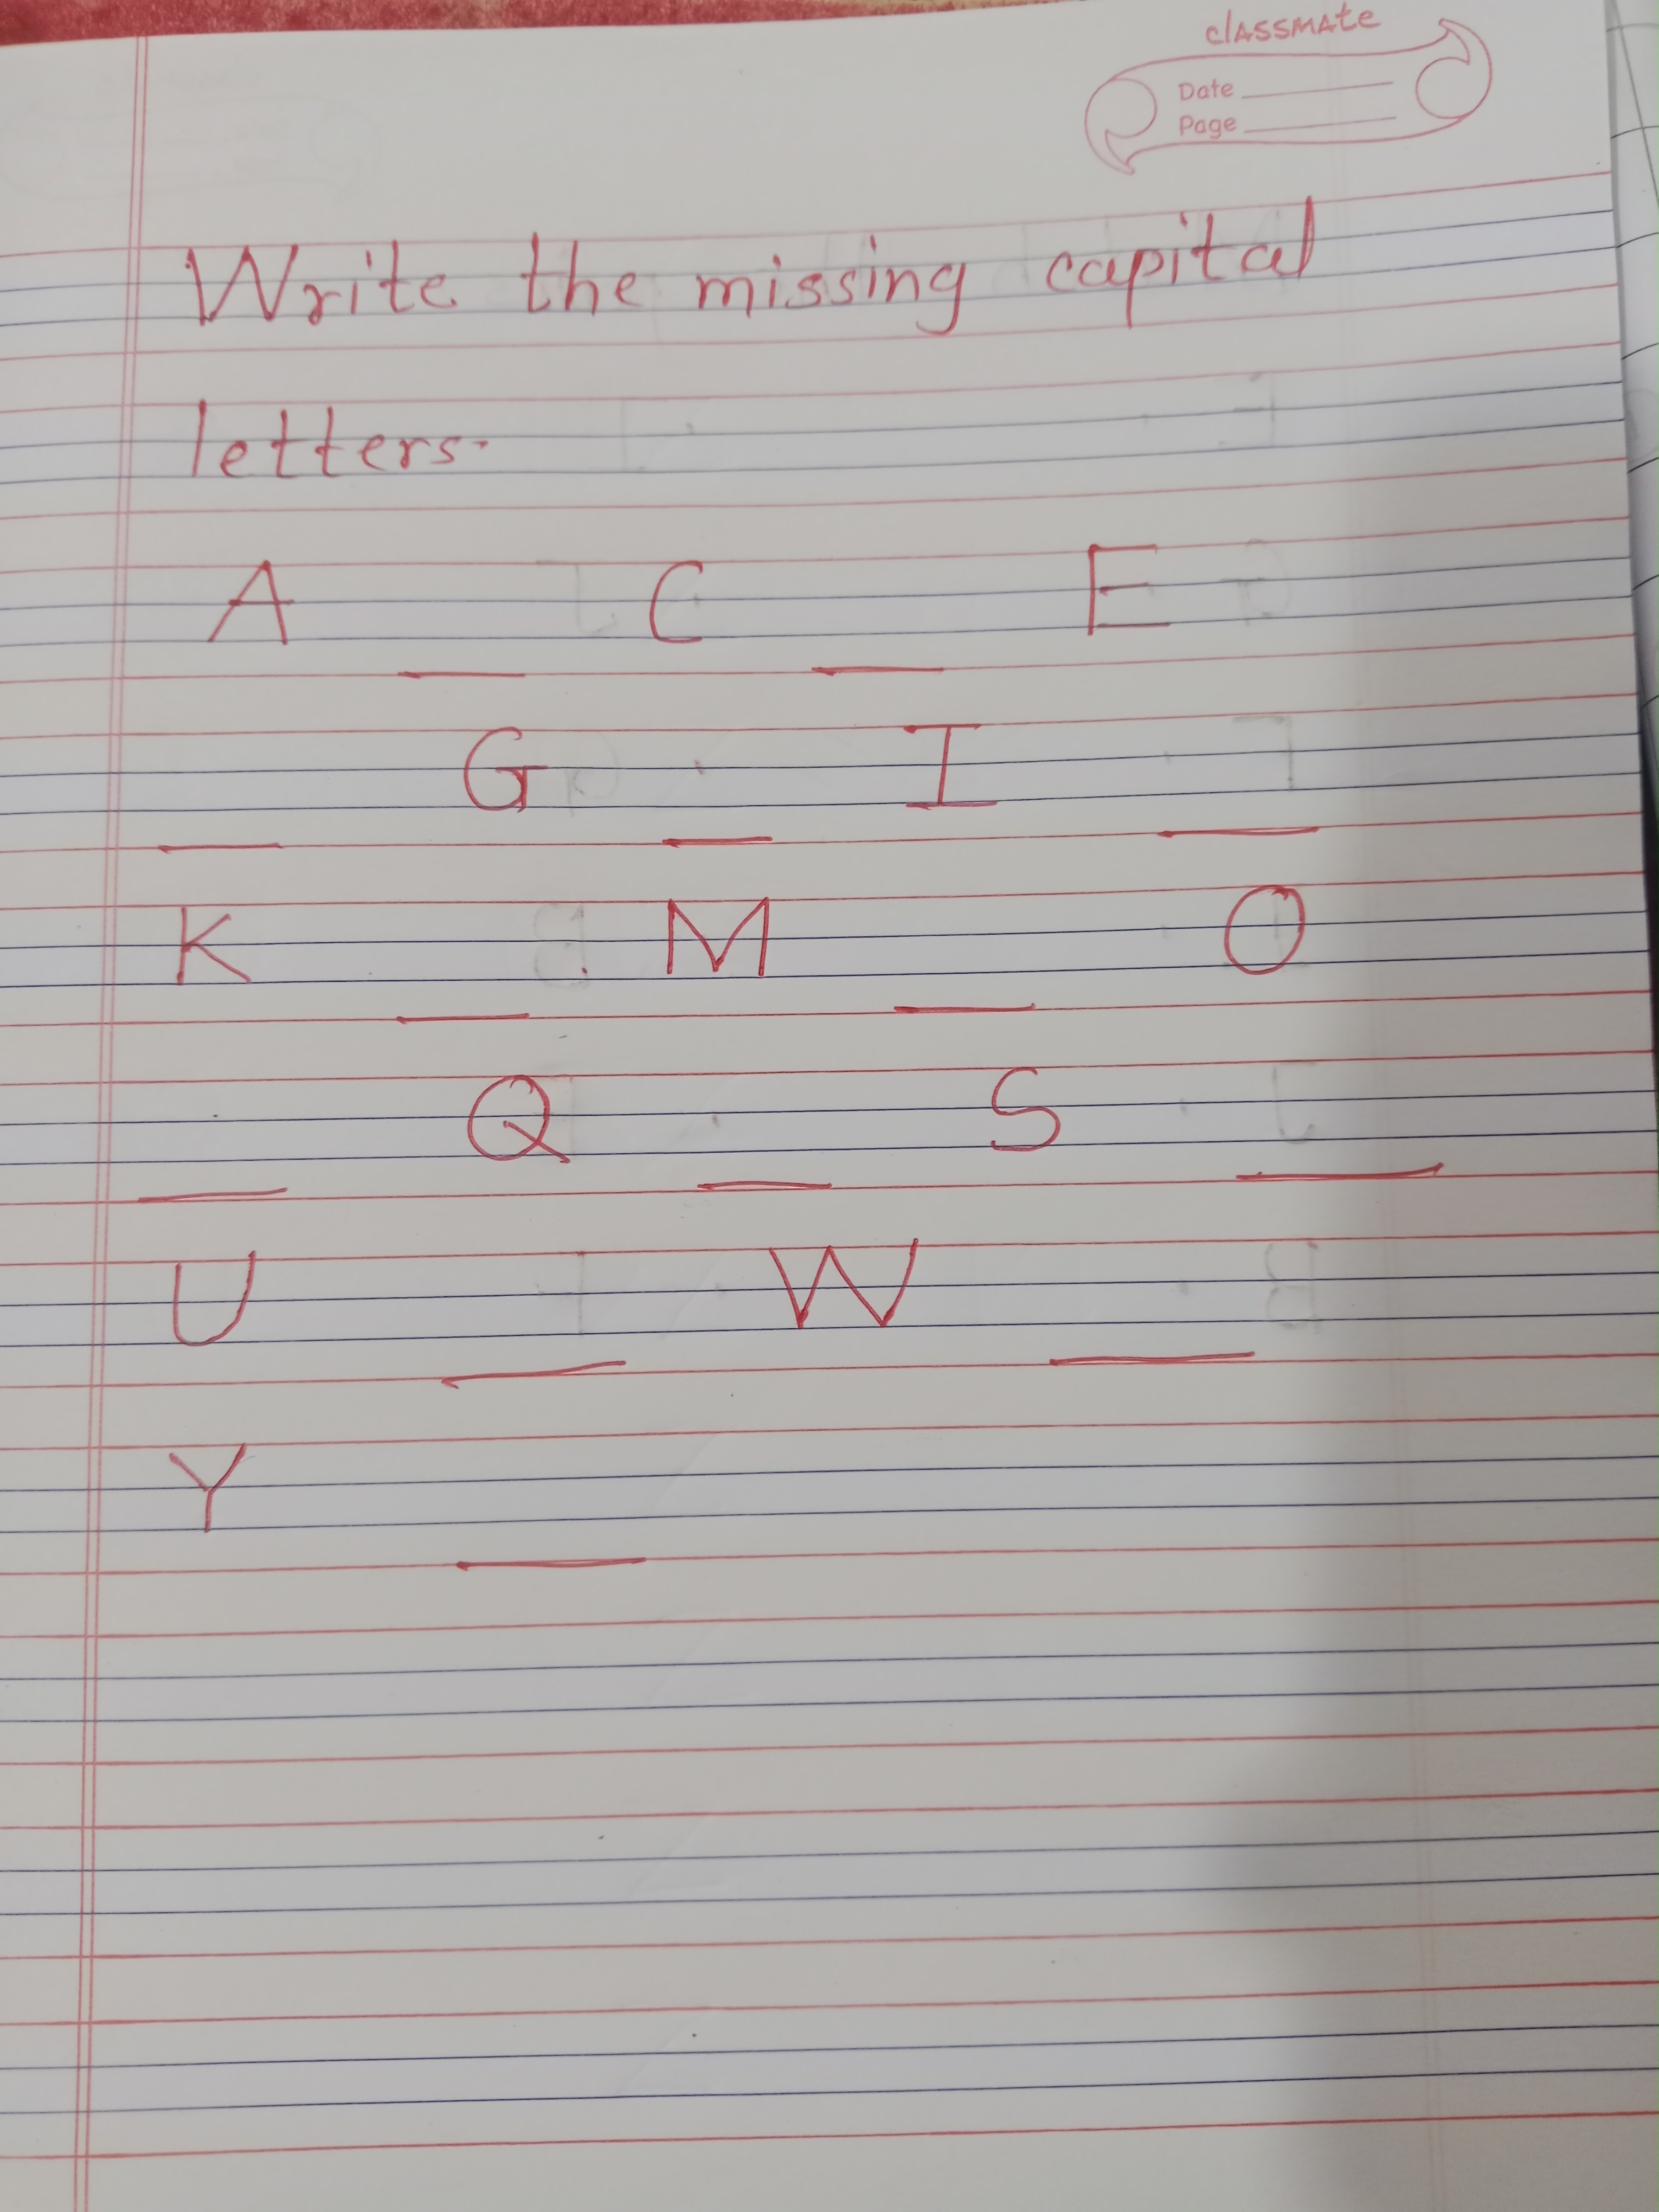 classmate
Date
Page
Write the missing capital
letters.
A __ C __ E
__ G __ I __
K __ M __ O
__ Q __ S __
U __ W __
Y __